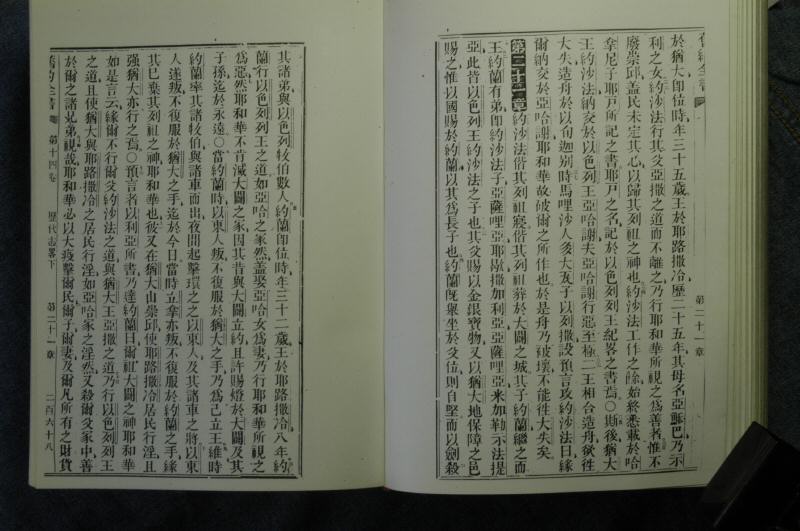 舊約全書
第二十一章
於猶大卽位時年三十五歲王於耶路撒冷歷二十五年其母名亞穌巴乃示
利之女約沙法行其父亞撒之道而不離之乃行耶和華所視之爲善者惟不
廢崇邱蓋民未定其心以歸其列祖之神也約沙法工作之餘始終悉載於哈
拿尼子耶戶所記之書耶戶之名記於以色列列王紀畧之書焉○斯後猶大
王約沙法納交於以色列王亞哈謝夫亞哈謝行惡至極二王相合造舟欲徃
大失造舟於以旬迦別時馬哩沙人多大瓦子以列撒設預言攻約沙法曰緣
爾納交於亞哈謝耶和華故破爾之所作也於是舟乃被壞不能徃大失矣
第二十一章約沙法偕其列祖寢偕其列祖葬於大闢之城其子約蘭繼之而
王約蘭有弟卽約沙法子亞薩哩亞耶歇撒加利亞亞薩哩亞米加勒示法提
亞此皆以色列王約沙法之子也其父賜以金銀寶物又以猶大地保障之邑
賜之惟以國賜於約蘭以其爲長子也約蘭旣舉坐於父位則自堅而以劍殺
其諸弟與以色列牧伯數人約蘭卽位時年三十二歲王於耶路撒冷八年約
蘭行以色列列王之道如亞哈之家然蓋娶亞哈女爲妻乃行耶和華所視之
爲惡然耶和華不肯滅大闢之家因其昔與大闢立約且許賜燈於大闢及其
子孫迄於永遠○當約蘭時以東人叛不復服於猶大之手乃爲己立王維時
約蘭率其諸牧伯與諸車而出夜間起擊環之之以東人及其諸車之將以東
人遂叛不復服於猶大之手迄於今日當時立拿亦叛不復服於約蘭之手緣
其已棄其列祖之神耶和華也彼又在猶大山崇邱使耶路撒冷居民行淫且
强猶大亦行之焉○預言者以利亞所書乃達約蘭曰爾祖大闢之神耶和華
如是言云緣爾不行爾父約沙法之道與猶大王亞撒之道乃行以色列列王
之道且使猶大與耶路撒冷之居民行淫如亞哈家之淫然又殺爾父家中善
於爾之諸兄弟視哉耶和華必以大疫擊爾民爾子爾妻及爾凡所有之財貨
舊約全書
第十四卷
歷代志畧下
第二十一章
二百六十八